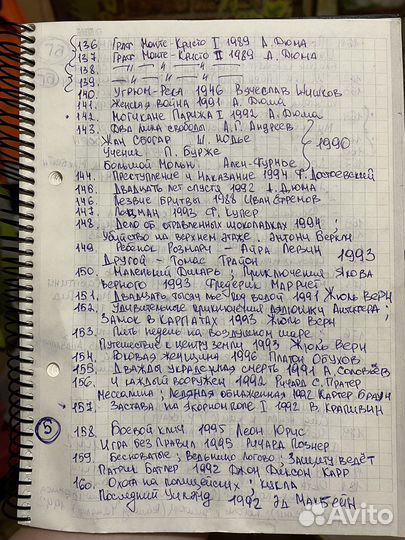 136. Граф Монте-Кристо I 1989 А. Дюма
137. Граф Монте-Кристо II 1989 А. Дюма
138. —"— " —"— " —"—
139. —"— " —"— " —"—
140. Угрюм-Река 1946 Вячеслав Шишков
141. Женская война 1991 А. Дюма
142. Могикане Парижа I 1992 А. Дюма
143. Два лика свободы А. Г. Андреев
Жан Сбогар Ш. Нодье
Ученик П. Бурже
Большой Мольн Ален-Фурнье
1990
144. Преступление и Наказание 1994 Ф. Достоевский
145. Двадцать лет спустя 1992 А. Дюма
146. Лезвие Бритвы 1988 Иван Ефремов
147. Лоцман 1993 Ф. Купер
148. Дело об отравленных шоколадках 1994;
Убийство на верхнем этаже. Энтони Беркли
149. Ребенок Розмари - Айра Левин
Другой - Томас Трайон 1993
150. Маленький Дикарь; Приключения Якова
Верного 1993 Фредерик Марриет
151. Двадцать тысяч лье под водой 1991 Жюль Верн
152. Удивительные приключения дядюшки Антифера;
Замок в Карпатах 1993 Жюль Верн
153. Пять недель на воздушном шаре;
Путешествие к центру земли 1993 Жюль Верн
154. Роковая женщина 1996 Платон Обухов
155. Дважды украденная смерть 1991 А. Соловьёв
156. И каждый вооружен 1992 Ричард С. Пратер
Мессалина; Ледяная обнаженная 1992 Картер Браун
157. Застава на Якорном поле I 1992 В. Крапивин
5
158. Боевой клич 1995 Леон Юрис
Игра без правил 1995 Ричард Познер
159. Бесноватые; Ведьмино логово; Защиту ведёт
Патрик Батлер 1992 Джон Диксон Карр
160. Охота на полицейских; Кукла
Последний Уикэнд 1992 Эд Макбейн
Avito